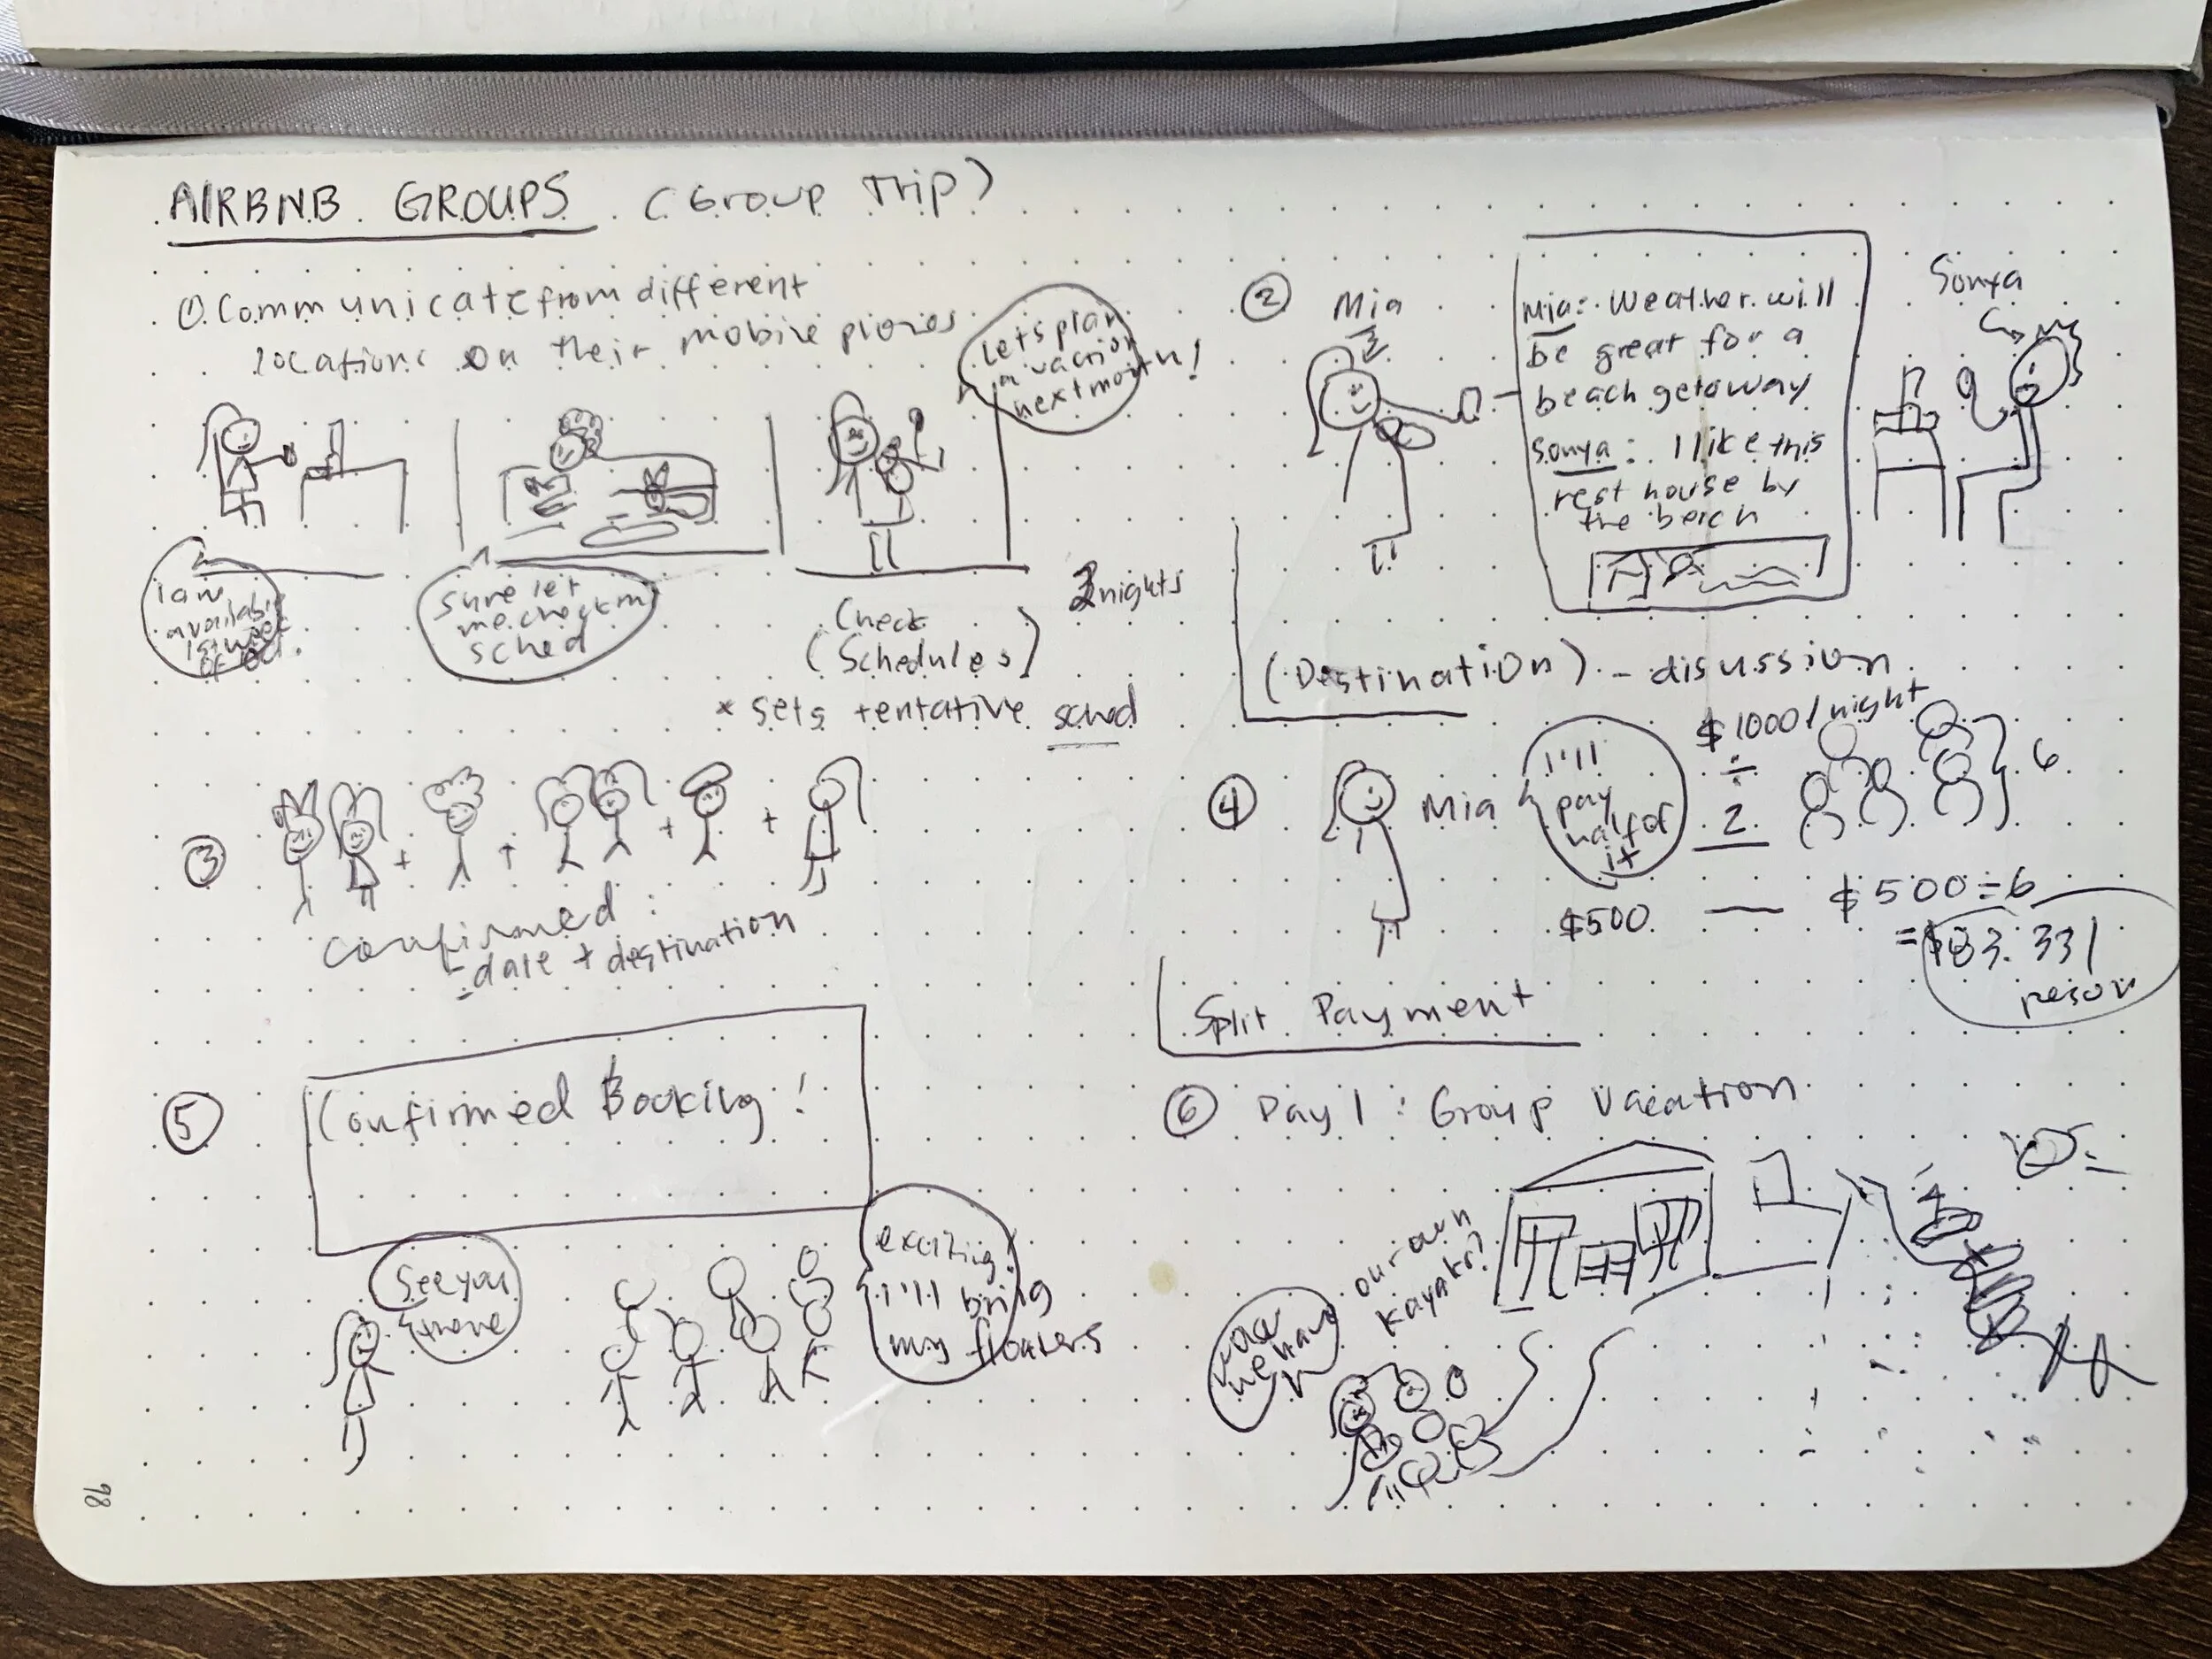 AIRBNB GROUPS (Group Trip)
① Communicate from different
locations on their mobile phones
Lets plan
a vacation
next month!
I am
available
1st week
of Oct.
Sure let
me check my
sched
Check
(Schedules)
* sets tentative sched
nights
② Mia
Mia: Weather will
be great for a
beach getaway
Sonya: I like this
rest house by
the beach
Sonya
(Destination) - discussion
③
Confirmed:
- date + destination
④ Mia
I'll
pay
half of
it
$1000/night
÷
2
6
$500 — $500÷6
= $83.33/
person
Split Payment
⑤ Confirmed Booking!
See you
there
exciting!
I'll bring
my floaters
⑥ Day 1: Group Vacation
we have
our own
kayaks?
98